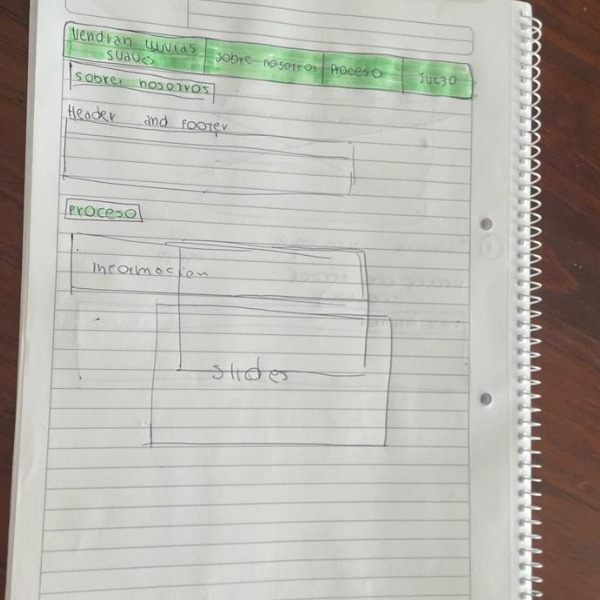 Vendran lluvias
suaves
Sobre nosotros
Proceso
Juego
Sobre: nosotros
Header and Footer
Proceso
Informacion
Slides